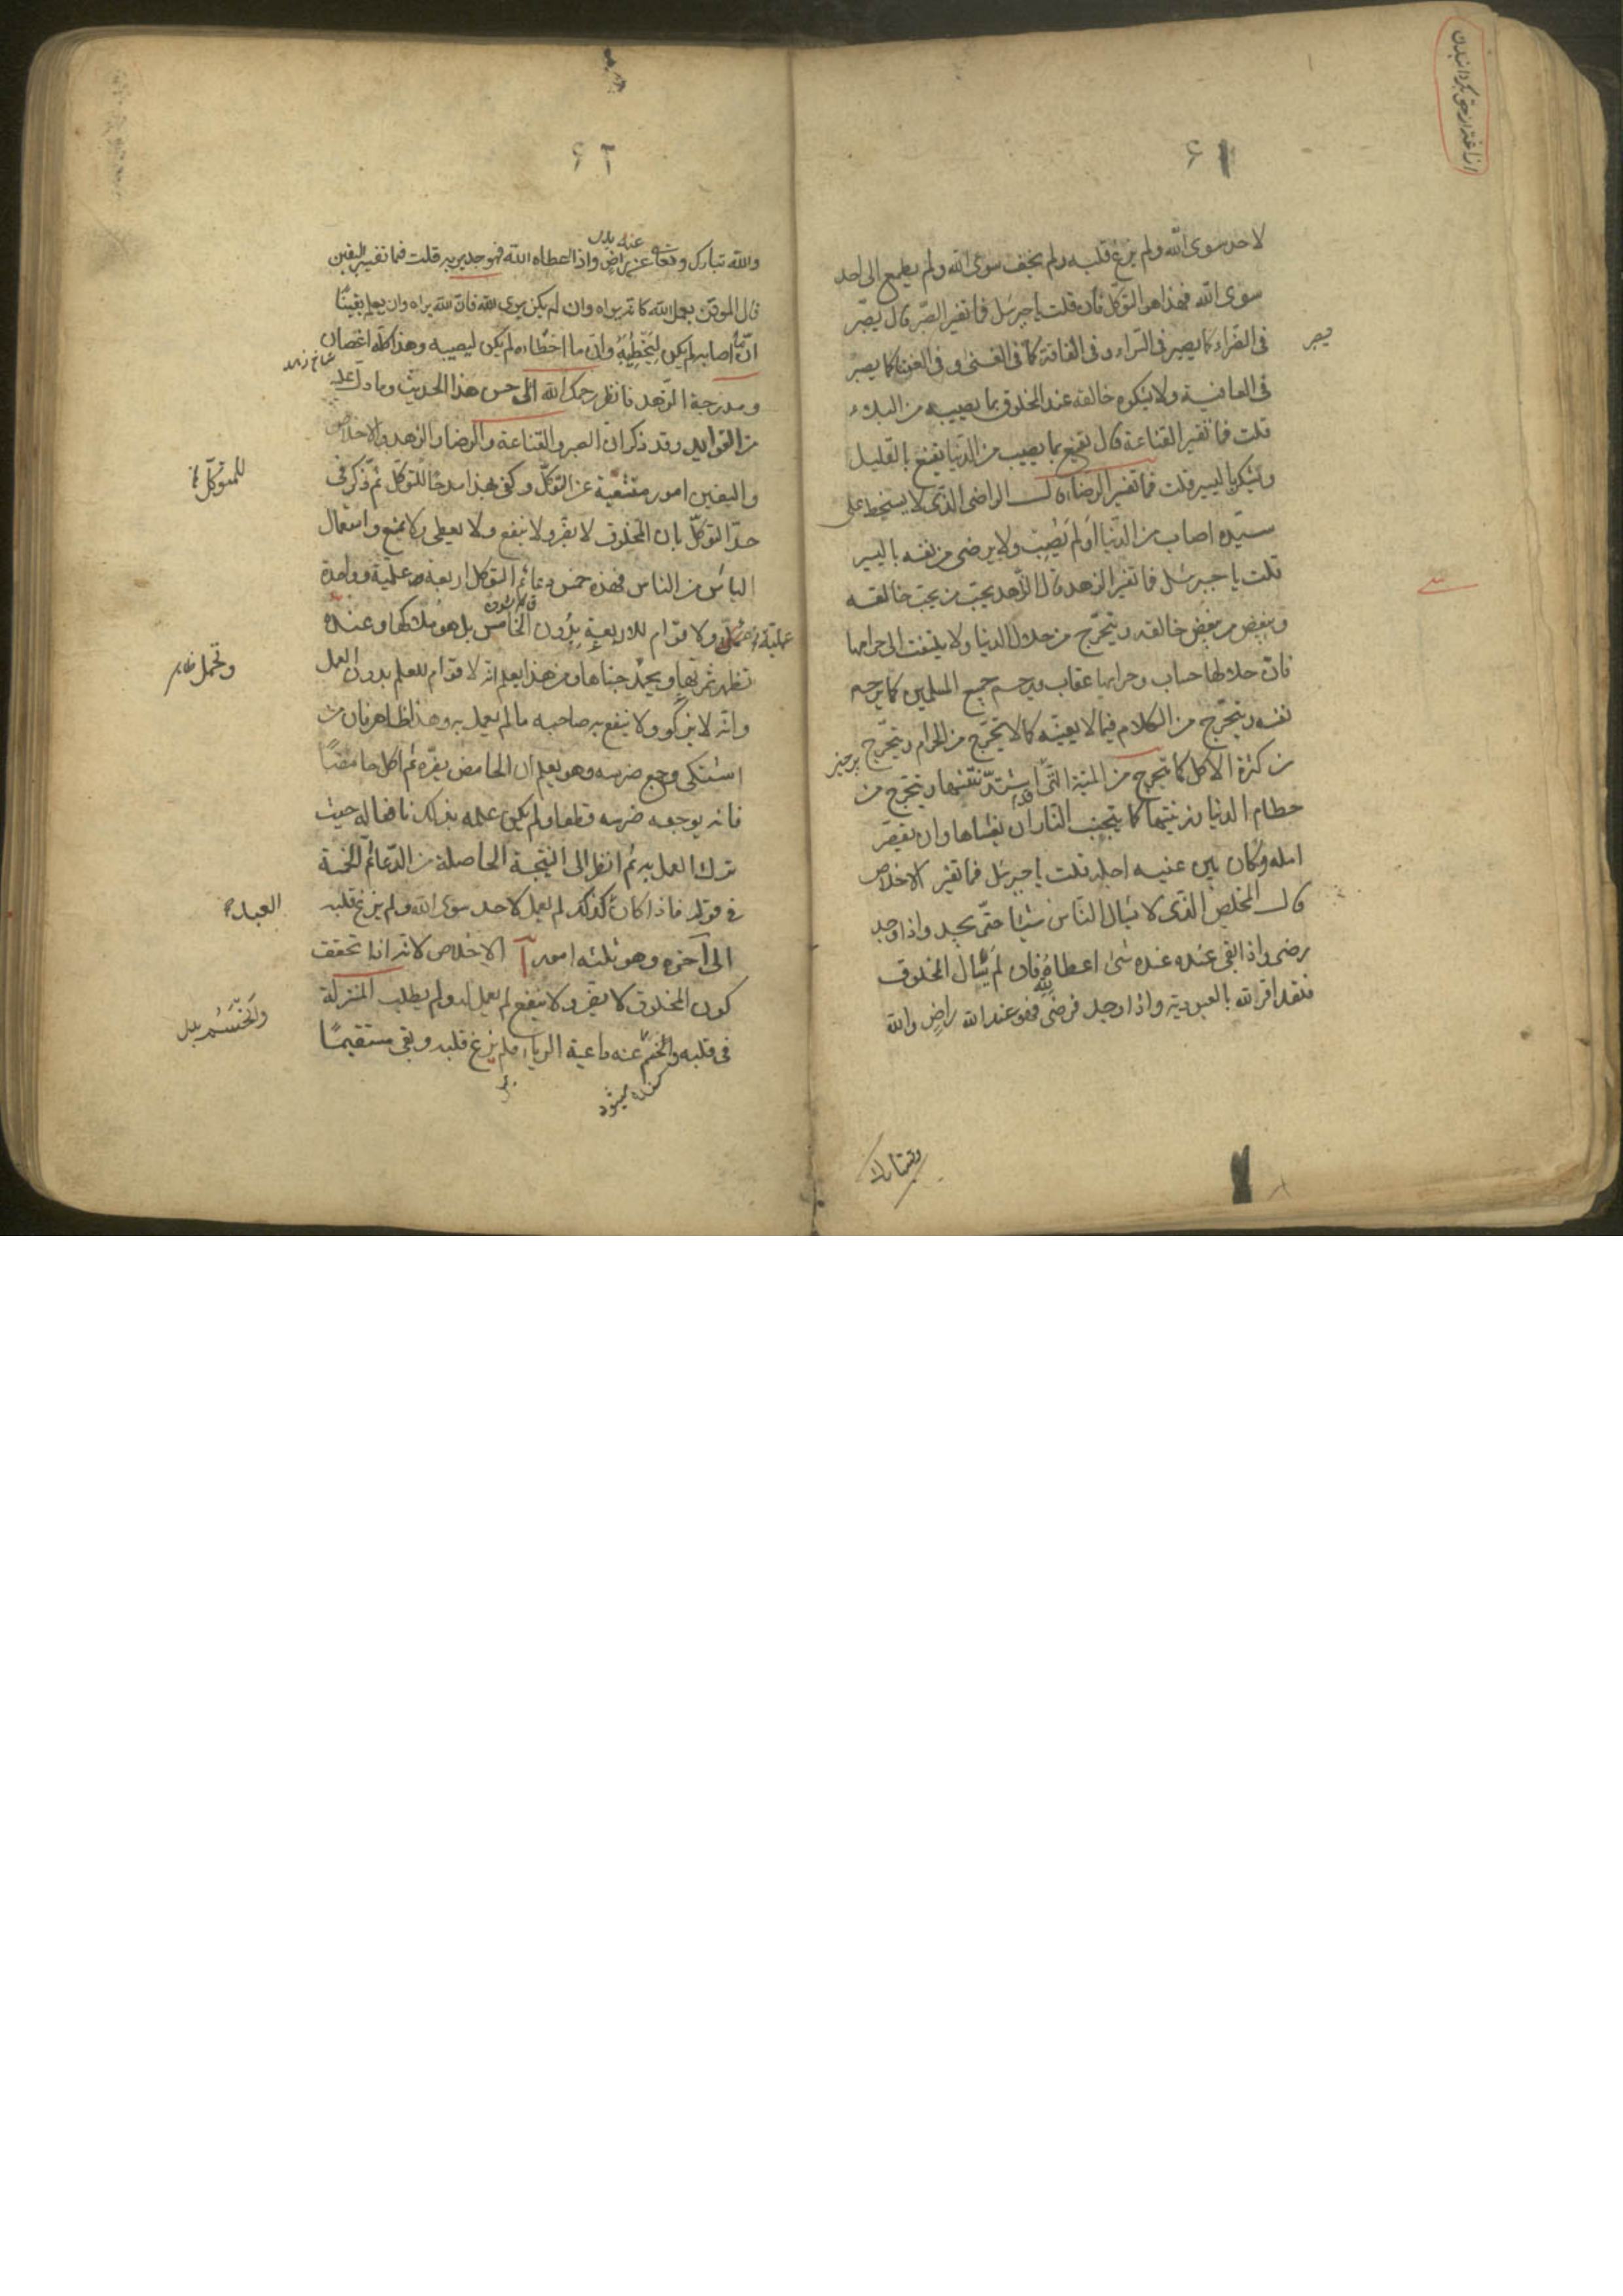 ازاغة از حق بگردانیدن
۶۱
لاحد سوی الله ولم یزغ قلبه ولم یخف سوی الله ولم یطمع الی احد
سوی الله فهذا هو التوکّل قال قلت یا جبرئیل فما تفسیر الصبر قال یصبر
فی الضراء کما یصبر فی السراء وفی الفاقة کما فی الغنی و فی العنا کما یصبر
یصبر
فی العافیة ولا یشکو خالقه عند المخلوق بما یصیبه من البلاء
قلت فما تفسیر القناعة قال یقنع بما یصیب من الدنیا یقنع بالقلیل
ویشکر بالیسیر قلت فما تفسیر الرضا قال الراضی الذی لا یسخط علی
سیّده اصاب من الدنیا او لم یُصِب ولا یرضی من نفسه بالیسیر
قلت یا جبرئیل فما تفسیر الزهد قال الزاهد یحبّ من یحبّ خالقه
ویبغض من یبغض خالقه ویتحرّج من حلال الدنیا ولا یلتفت الی حرامها
فانّ حلالها حساب وحرامها عقاب ویرحم جمیع المسلمین کما یرحم
نفسه ویتحرّج من الکلام فیما لا یعنیه کما لا یتحرّج من الحرام ویتحرّج
من کثرة الاکل کما یتحرج من المیتة التی قد اشتدّ نتنها ویتحرّج من
حطام الدنیا وزینتها کما یتجنب النار ان یغشاها وان یقصر
امله وکان بین عینیه اجله قلت یا جبرئیل فما تفسیر الاخلاص
قال المخلص الذی لا یسأل الناس شیئا حتّی یجد واذا وجد
رضی واذا بقی عنده شئ اعطاه لله فان لم یسأل المخلوق
فقد اقر لله بالعبودیة واذا وجد فرضی فهو عند الله راضٍ والله
۶۲
والله تبارک وتعالی عنه راضٍ واذا اعطاه الله فهو جدیر به قلت فما تفسیر الیقین
قال الموقن یعمل لله کانّه یراه وان لم یکن یری الله فان الله یراه وان یعلم یقینًا
انّ ما اصابه لم یکن لیُخطِیَهُ وانّ ما اخطاه لم یکن لیصیبه وهذا کلّه اغصان
ومدرجة الزهد فانظر رحمک الله الی حسن هذا الحدیث وما دل علیه
من الفواید وقد ذکر انّ الصبر والقناعة والرضا والزهد والاخلاص
والیقین امور منشعبة عن التوکّل وکفی بهذا مدحًا للتوکّل ثم ذکر فی
للمتوکّل
حدّ التوکّل بان المخلوق لا یضرّ ولا ینفع ولا یعطی ولا یمنع واستعمال
الیأس من الناس فهذه خمس دعائم التوکل اربعة علمیة وواحدة
عملیة ولا قوام للاربعة بدُون الخامس بل هو ملاکها وعنده
تظهر ثمرتها ویحمد جناها ومن هذا یعلم انّه لا قوام للعلم بدون العمل
وانّه لا یزکو ولا ینفع به صاحبه ما لم یعمل به وهذا ظاهر فان من
اشتکی وجع ضرسه وهو یعلم ان الحامض یضرّه ثم اکل حامضًا
فانه یوجعه ضرسه قطعا ولم یکن علمه بذلک نافعا له حیث
ترک العمل به ثم انظر الی النتیجة الحاصلة من الدعائم الخمسة
فی قوله فاذا کان کذلک لم یعمل لاحد سوی الله ولم یزغ قلبه
الی آخره وهو ثلثه امور آ الاخلاص لانّه اذا تحقق
کون المخلوق لا یضرّ ولا ینفع لم یعمل له ولم یطلب المنزلة
فی قلبه وانحسم عنه داعیة الریاء فلم یزغ قلبه وبقی مستقیمًا